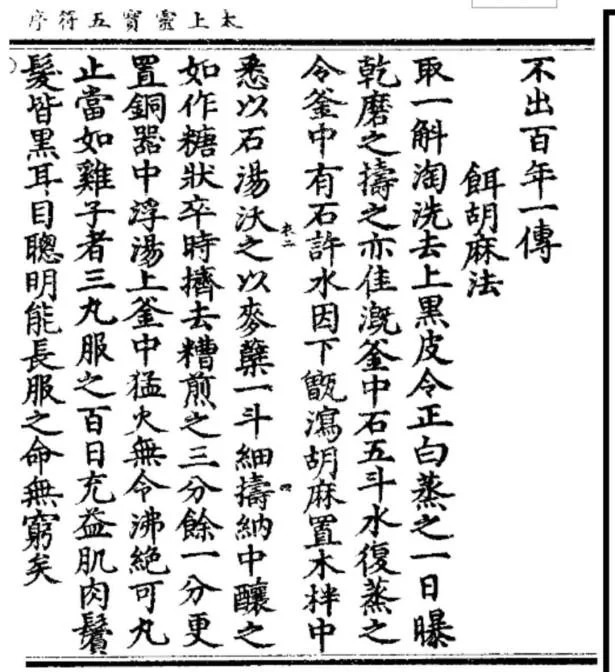 太上靈寶五符序
不出百年一傳
餌胡麻法
取一斛淘洗去上黑皮令正白蒸之一日曝
乾磨之擣之亦佳溉釜中石五斗水復蒸之
令釜中有石許水因下甑瀉胡麻置木柈中
悉以石湯沃之以麥糵一斗細擣納中釀之
衣二
四
如作糖狀卒時擠去糟煎之三分餘一分更
置銅器中浮湯上釜中猛火無令沸絶可丸
止當如雞子者三丸服之百日充益肌肉鬢
髮皆黑耳目聰明能長服之命無窮矣